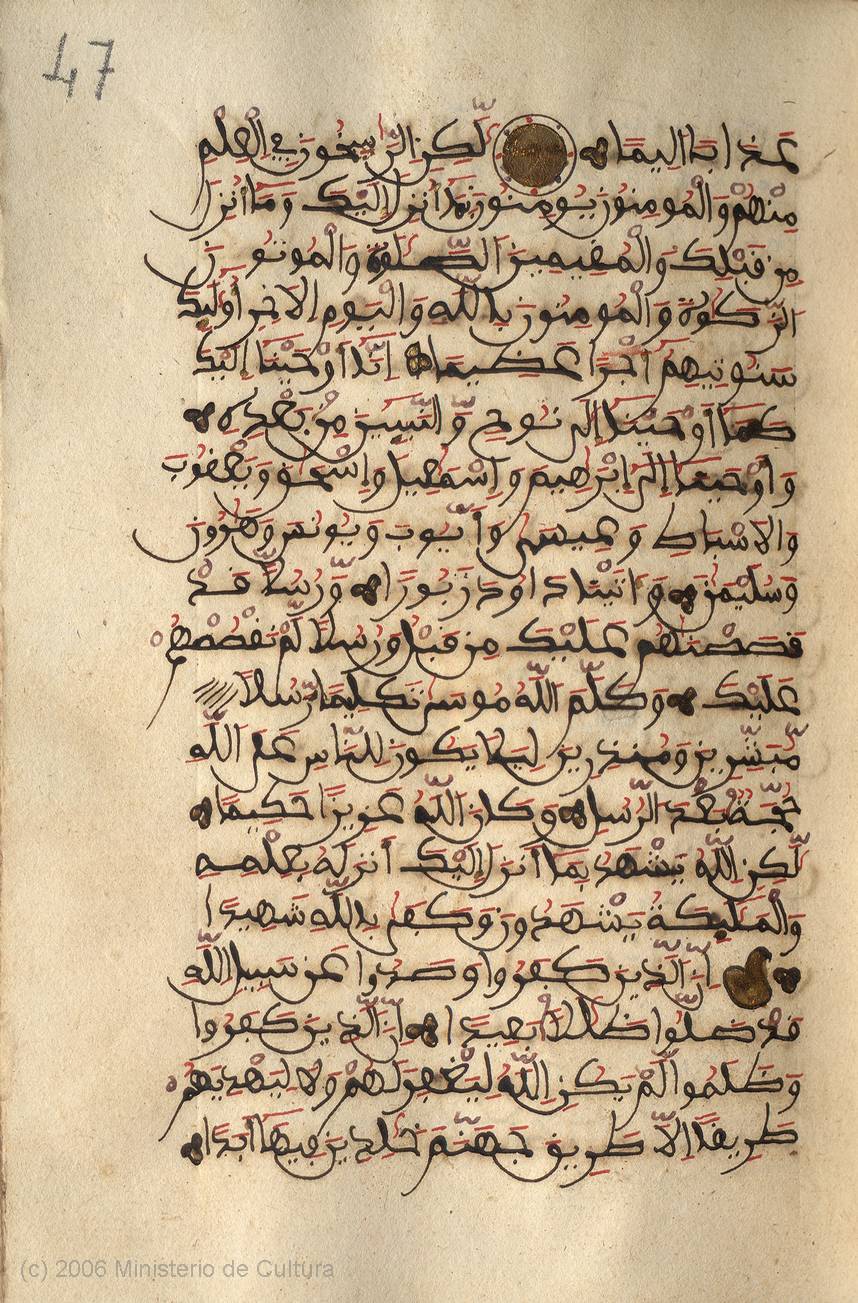 47
عَذَابًا اَلِيمًا لَّٰكِنِ الرَّٰسِخُونَ فِي الْعِلْمِ
مِنْهُمْ وَالْمُومِنُونَ يُومِنُونَ بِمَا أُنزِلَ إِلَيْكَ وَمَا أُنزِلَ
مِن قَبْلِكَ وَالْمُقِيمِينَ الصَّلَوٰةَ وَالْمُوتُونَ
الزَّكَوٰةَ وَالْمُومِنُونَ بِاللَّهِ وَالْيَوْمِ الَاخِرِ أُوْلَٰئِكَ
سَنُوتِيهِمُ أَجْرًا عَظِيمًا اِنَّا أَوْحَيْنَا إِلَيْكَ
كَمَا أَوْحَيْنَا إِلَىٰ نُوحٍ وَّالنَّبِيِينَ مِنْ بَعْدِهِ
وَأَوْحَيْنَا إِلَىٰ إِبْرَٰهِيمَ وَإِسْمَٰعِيلَ وَإِسْحَٰقَ وَيَعْقُوبَ
وَالَاسْبَاطِ وَعِيسَىٰ وَأَيُّوبَ وَيُونُسَ وَهَٰرُونَ
وَسُلَيْمَٰنَ وَءَاتَيْنَا دَاوُدَ زَبُورًا وَّرُسُلًا قَدْ
قَصَصْنَٰهُمْ عَلَيْكَ مِن قَبْلُ وَرُسُلًا لَّمْ نَقْصُصْهُمْ
عَلَيْكَ وَكَلَّمَ اللَّهُ مُوسَىٰ تَكْلِيمًا رُّسُلًا
مُّبَشِّرِينَ وَمُنذِرِينَ لِيَلَّا يَكُونَ لِلنَّاسِ عَلَى اللَّهِ
حُجَّةٌ بَعْدَ الرُّسُلِ وَكَانَ اللَّهُ عَزِيزًا حَكِيمًا
لَّٰكِنِ اللَّهُ يَشْهَدُ بِمَا أَنزَلَ إِلَيْكَ أَنزَلَهُ بِعِلْمِهِ
وَالْمَلَٰئِكَةُ يَشْهَدُونَ وَكَفَىٰ بِاللَّهِ شَهِيدًا
اِنَّ الَّذِينَ كَفَرُوا وَصَدُّوا عَن سَبِيلِ اللَّهِ
قَدْ ضَلُّوا ضَلَٰلًا بَعِيدًا اِنَّ الَّذِينَ كَفَرُوا
وَظَلَمُوا لَمْ يَكُنِ اللَّهُ لِيَغْفِرَ لَهُمْ وَلَا لِيَهْدِيَهُمْ
طَرِيقًا اِلَّا طَرِيقَ جَهَنَّمَ خَٰلِدِينَ فِيهَا أَبَدًا
(c) 2006 Ministerio de Cultura